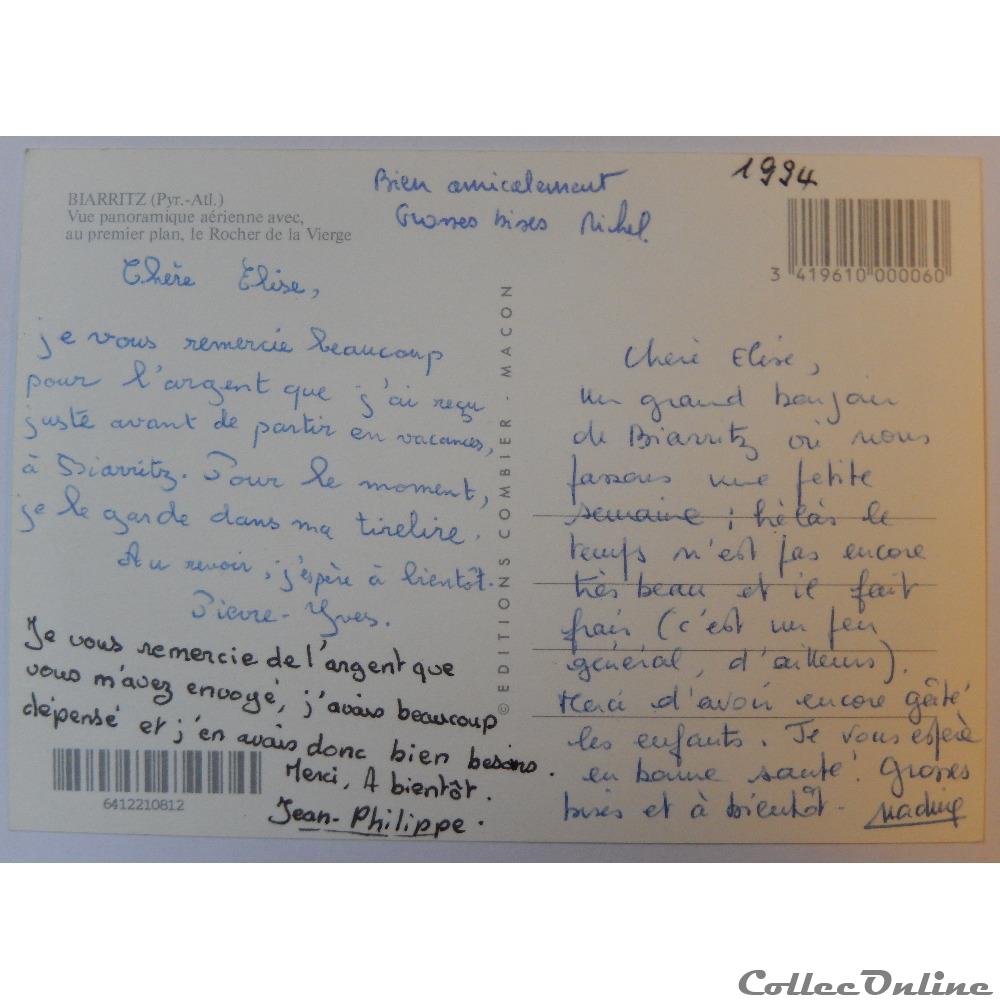 BIARRITZ (Pyr.-Atl.)
Vue panoramique aérienne avec,
au premier plan, le Rocher de la Vierge
Bien amicalement
Grosses bises Michel
1994
3 419610 000060
Chère Elise,
je vous remercie beaucoup
pour l'argent que j'ai reçu
juste avant de partir en vacances,
à Biarritz. Pour le moment,
je le garde dans ma tirelire.
Au revoir, j'espère à bientôt.
Pierre-Yves.
Je vous remercie de l'argent que
vous m'avez envoyé, j'avais beaucoup
dépensé et j'en avais donc bien besoins.
Merci, A bientôt.
Jean-Philippe.
6412210812
© EDITIONS COMBIER - MACON
Chère Elise,
un grand bonjour
de Biarritz où nous
passons une petite
semaine ; hélàs le
temps n'est pas encore
très beau et il fait
frais (c'est un peu
général, d'ailleurs).
Merci d'avoir encore gâté
les enfants. Je vous espère
en bonne santé. Grosses
bises et à bientôt - Nadine
CollecOnline